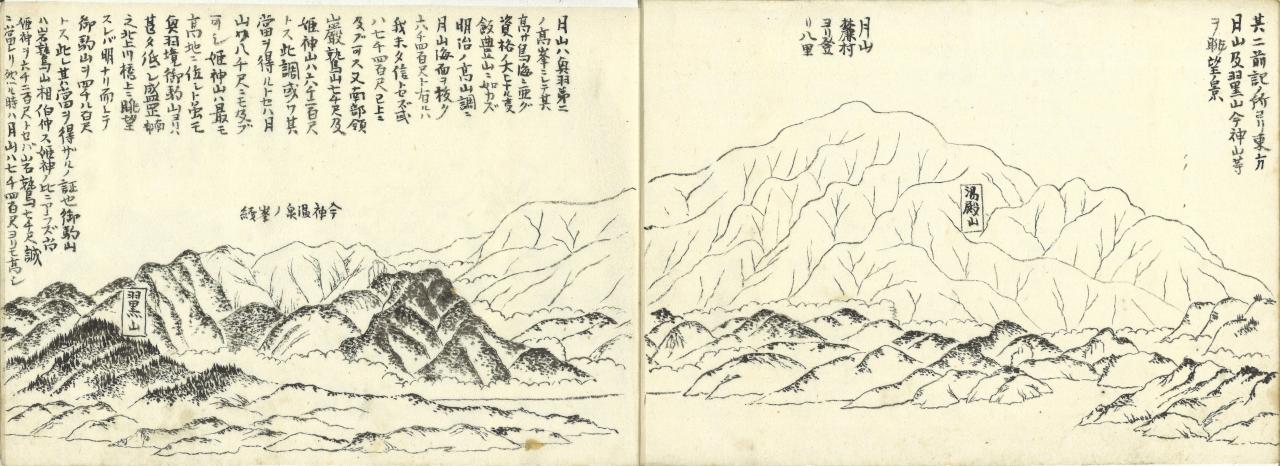 其二前記ノ所ヨリ東方
月山及羽黒山今神山等
ヲ眺望ノ景
月山
麓村
ヨリ登
リ八里
湯殿山
月山ハ奥羽第二
ノ高峯ニシテ其
高サ鳥海ニ亜グ
資格ノ大ヒナル事
飯豊山ニ如カズ
明治ノ高山調ニ
月山海面ヲ抜ク
六千四百尺ト有ルハ
我未タ信セズ或
ハ七千四百尺已上ニ
及ブ可シ又南部領
巌鷲山七千尺及
姫神山ハ六千二百尺
トス此調或ハ其
當ヲ得ルトセバ月
山ハ八千尺ニモ及ブ
可シ姫神山ハ最モ
高地ニ位シト虽モ
奥羽境御駒山ヨリハ
甚タ低シ盛岡南
之北上川橋上ニ眺望
スレバ明ナリ而シテ
御駒山ヲ四千八百尺
トス此レ其ハ當ヲ得ザルノ証也御駒山
ハ岩鷲山相伯仲ス姫神ノ比ニアラズ尚
姫神ヲ六千二百尺トセバ岩鷲七千尺誠
ニ當レリ然ル時ハ月山ハ七千四百尺ヨリモ高シ
今神温泉ノ峯続
羽黒山